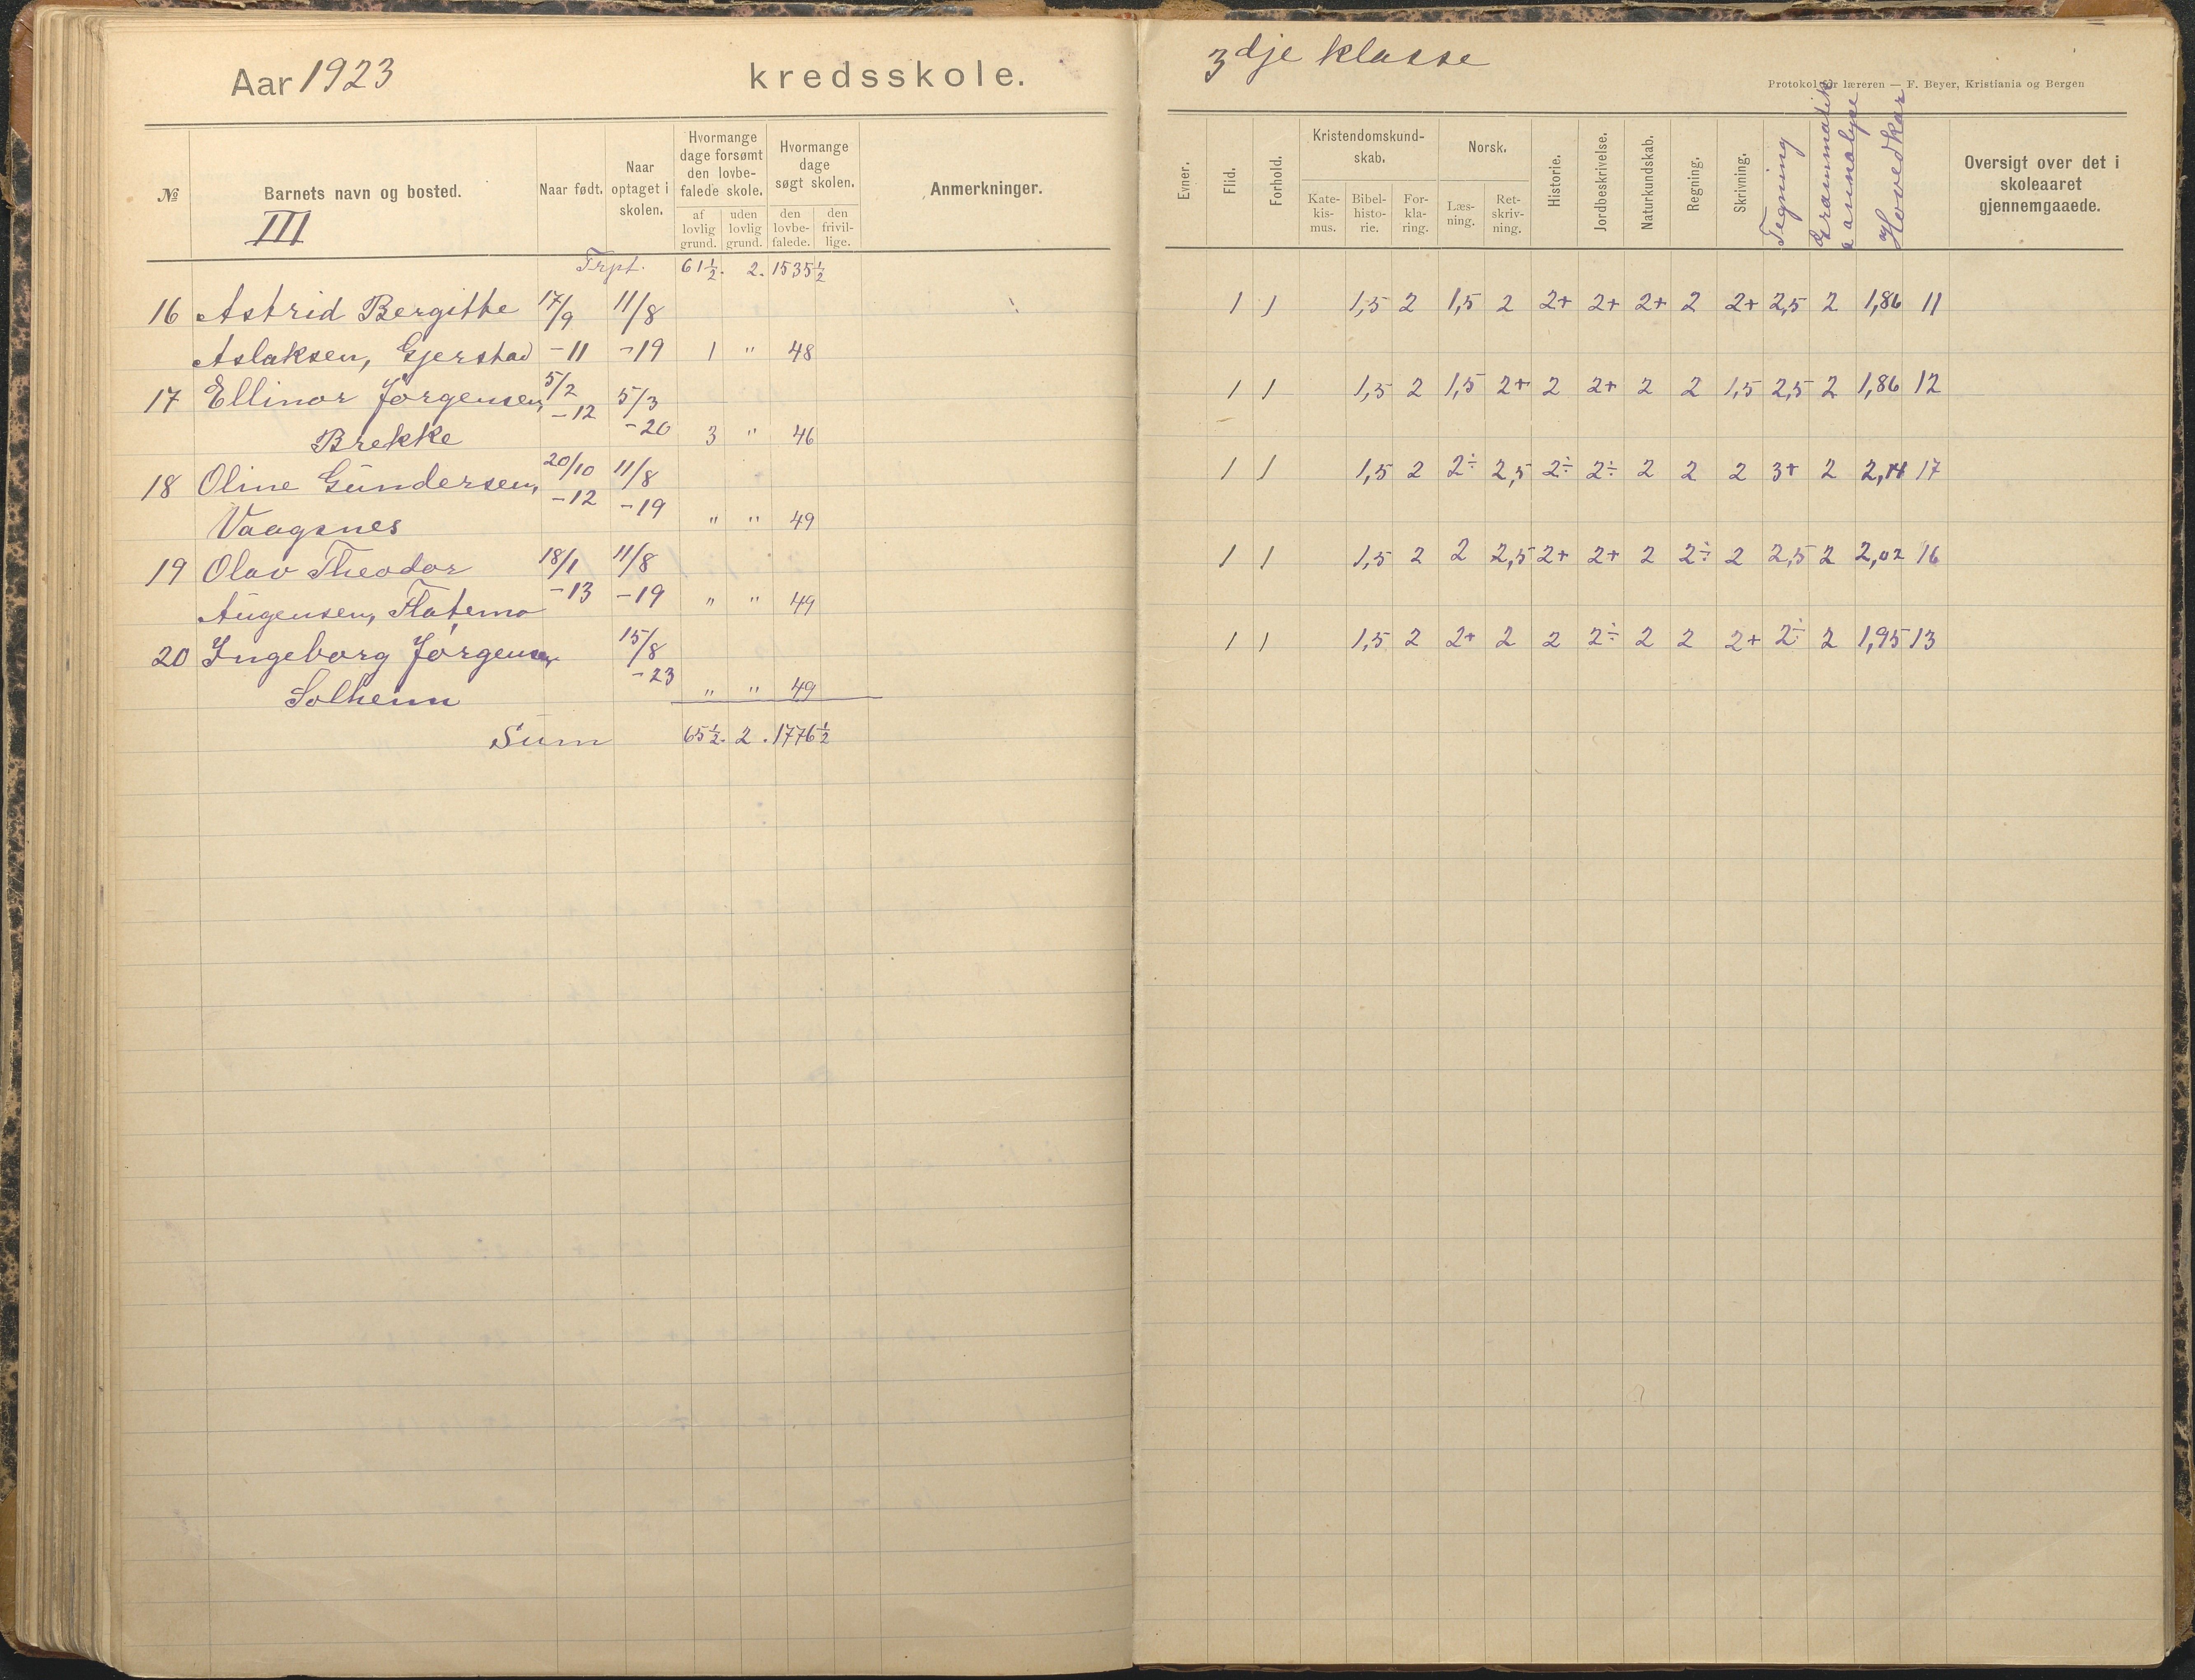 Aar 1923 kredsskole.
№ Barnets navn og bosted. Naar født. Naar optaget i skolen. Hvormange dage forsømt den lovbefalede skole. Hvormange dage søgt skolen. Anmerkninger.
af lovlig grund. uden lovlig grund. den lovbefalede. den frivillige.
III
Trpt. 61½. 2. 1535½
16 Astrid Bergithe 17/9 11/8
Aslaksen, Gjerstad -11 -19 1 " 48
17 Ellinor Jörgensen, 5/2 5/3
-12
Brekke -20 3 " 46
18 Oline Gundersen, 20/10 11/8
-12 -19
Vaagsnes " " 49
19 Olav Theodor 18/1 11/8
-13 -19
Augensen, Flatemo " " 49
20 Ingeborg Jörgensen 15/8
-23
Solheim " " 49
Sum 65½. 2. 1776½
3dje klasse
Protokol for læreren — F. Beyer, Kristiania og Bergen
Evner. Flid. Forhold. Kristendomskundskab. Norsk. Historie. Jordbeskrivelse. Naturkundskab. Regning. Skrivning. Tegning Grammatik a annalyse Hovedkar Oversigt over det i skoleaaret gjennemgaaede.
Katekismus. Bibelhistorie. Forklaring. Læsning. Retskrivning.
1 1 1,5 2 1,5 2 2+ 2+ 2+ 2 2+ 2,5 2 1,86 11
1 1 1,5 2 1,5 2+ 2 2+ 2 2 1,5 2,5 2 1,86 12
1 1 1,5 2 2÷ 2,5 2÷ 2÷ 2 2 2 3+ 2 2,14 17
1 1 1,5 2 2 2,5 2+ 2+ 2 2÷ 2 2,5 2 2,02 16
1 1 1,5 2 2+ 2 2 2÷ 2 2 2+ 2÷ 2 1,95 13